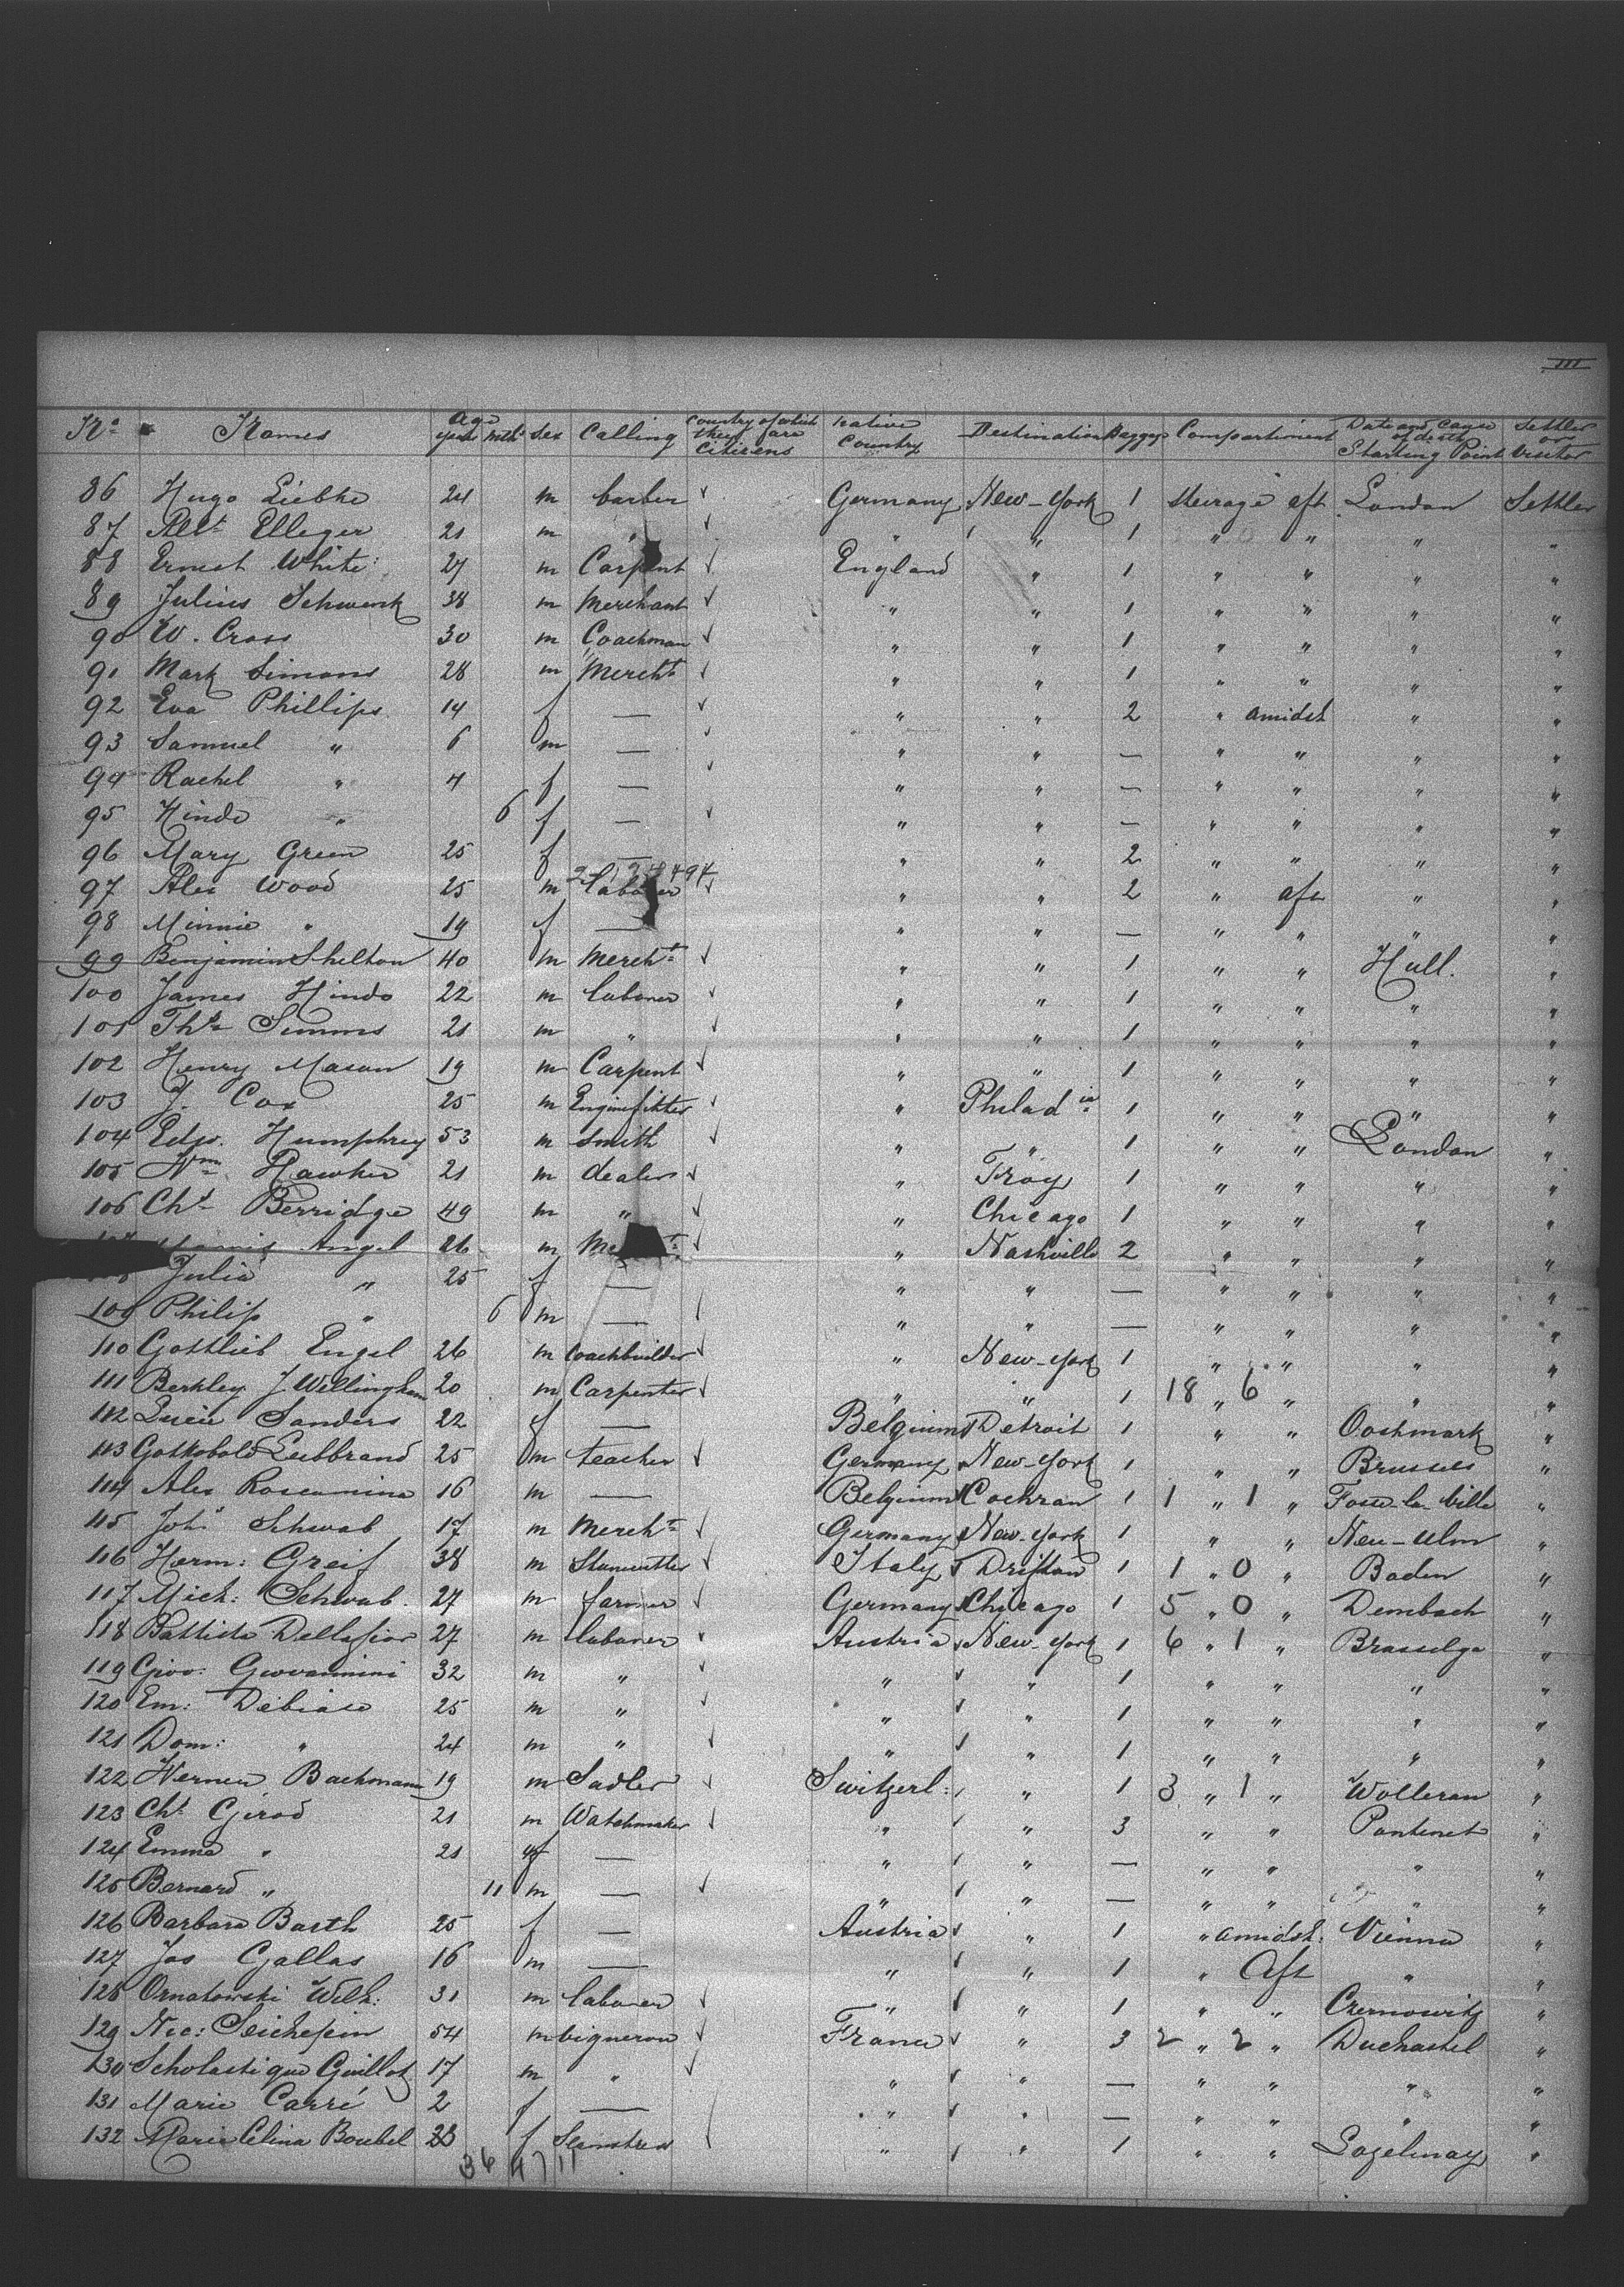 III
No Names Age years mths Sex Calling Country of which they are Citizens Native Country Destination Baggage Compartiment Date and Cause of death Starting Point Settler or Visitor
86 Hugo Liebke 24 m barber ✓ Germany New-York 1 Steerage aft London Settler
87 Albt Elleger 21 m " ✓ " " 1 " " " "
88 Ernest White 27 m Carpent ✓ England " 1 " " " "
89 Julius Schwenk 38 m Merchant ✓ " " 1 " " " "
90 W. Cross 30 m Coachman ✓ " " 1 " " " "
91 Mark Simons 28 m Mercht ✓ " " 1 " " " "
92 Eva Phillips 14 f — ✓ " " 2 " amidsh " "
93 Samuel " 6 m — ✓ " " — " " " "
94 Rachel " 4 f — ✓ " " — " " " "
95 Hinde " 6 f — ✓ " " — " " " "
96 Mary Green 25 f — " " 2 " " " "
97 Alex Wood 25 m laborer ✓ " " 2 " aft " "
98 Minnie " 19 f — " " — " " " "
99 Benjamin Shelton 40 m Mercht ✓ " " 1 " " Hull. "
100 James Hinds 22 m laborer ✓ " " 1 " " " "
101 Ths Simms 21 m " ✓ " " 1 " " " "
102 Henry Mason 19 m Carpent ✓ " " 1 " " " "
103 J. Cox 25 m Enginefitter ✓ " Philadia 1 " " " "
104 Edw. Humphrey 53 m Smith ✓ " " 1 " " London "
105 Wm Hawker 21 m dealer ✓ " Troy 1 " " " "
106 Chs Berridge 49 m " ✓ " Chicago 1 " " " "
Angel 26 m ✓ " Nashville 2 " " " "
Julia " 25 f — " " — " " " "
109 Philip " 6 m — ✓ " " — " " " "
110 Gottlieb Engel 26 m Coachbuilder ✓ " New-York 1 " " " "
111 Berkley J Wellingham 20 m Carpenter ✓ " " 1 18 " 6 " " "
112 Lucie Sanders 22 f — Belgium Detroit 1 " " Oostmark "
113 Gottobold Leibbrand 25 m teacher ✓ Germany New-York 1 " " Brussels "
114 Alex Roseamina 16 m — Belgium Cochran 1 1 " 1 " Fosse-la-ville "
115 Joh. Schwab 17 m Mercht ✓ Germany New-York 1 " " Neu-Ulm "
116 Herm: Greif 38 m Stonecutter ✓ Italy Drifton 1 1 " 0 " Baden "
117 Mich: Schwab 27 m farmer ✓ Germany Chicago 1 5 " 0 " Dembach "
118 Battista Dellafior 27 m laborer ✓ Austria New-York 1 6 " 1 " Brasselga "
119 Giov: Giovannini 32 m " ✓ " " 1 " " " "
120 Em: Debiasi 25 m " ✓ " " 1 " " " "
121 Dom: " 24 m " ✓ " " 1 " " " "
122 Werner Bachmann 19 m Sadler ✓ Switzerl: " 1 3 " 1 " Wolleran "
123 Chs Girod 21 m Watchmaker ✓ " " 3 " " Pontenet "
124 Emma " 21 f — " " — " " " "
125 Bernard " 11 m — ✓ " " — " " " "
126 Barbara Barth 25 f — Austria " 1 " amidsh: Vienna "
127 Jos Gallas 16 m — " " 1 " Aft " "
128 Ornatowski Wilh: 31 m laborer ✓ " " 1 " " Czernowitz "
129 Nic: Seichepin 54 m vigneron ✓ France " 3 2 " 2 " Duchastel "
130 Scholastique Guillot 17 m " ✓ " " — " " " "
131 Marie Carré 2 f — " " — " " " "
132 Marie Celina Boubel 23 f Seamstress " " 1 " " "
36 47 11